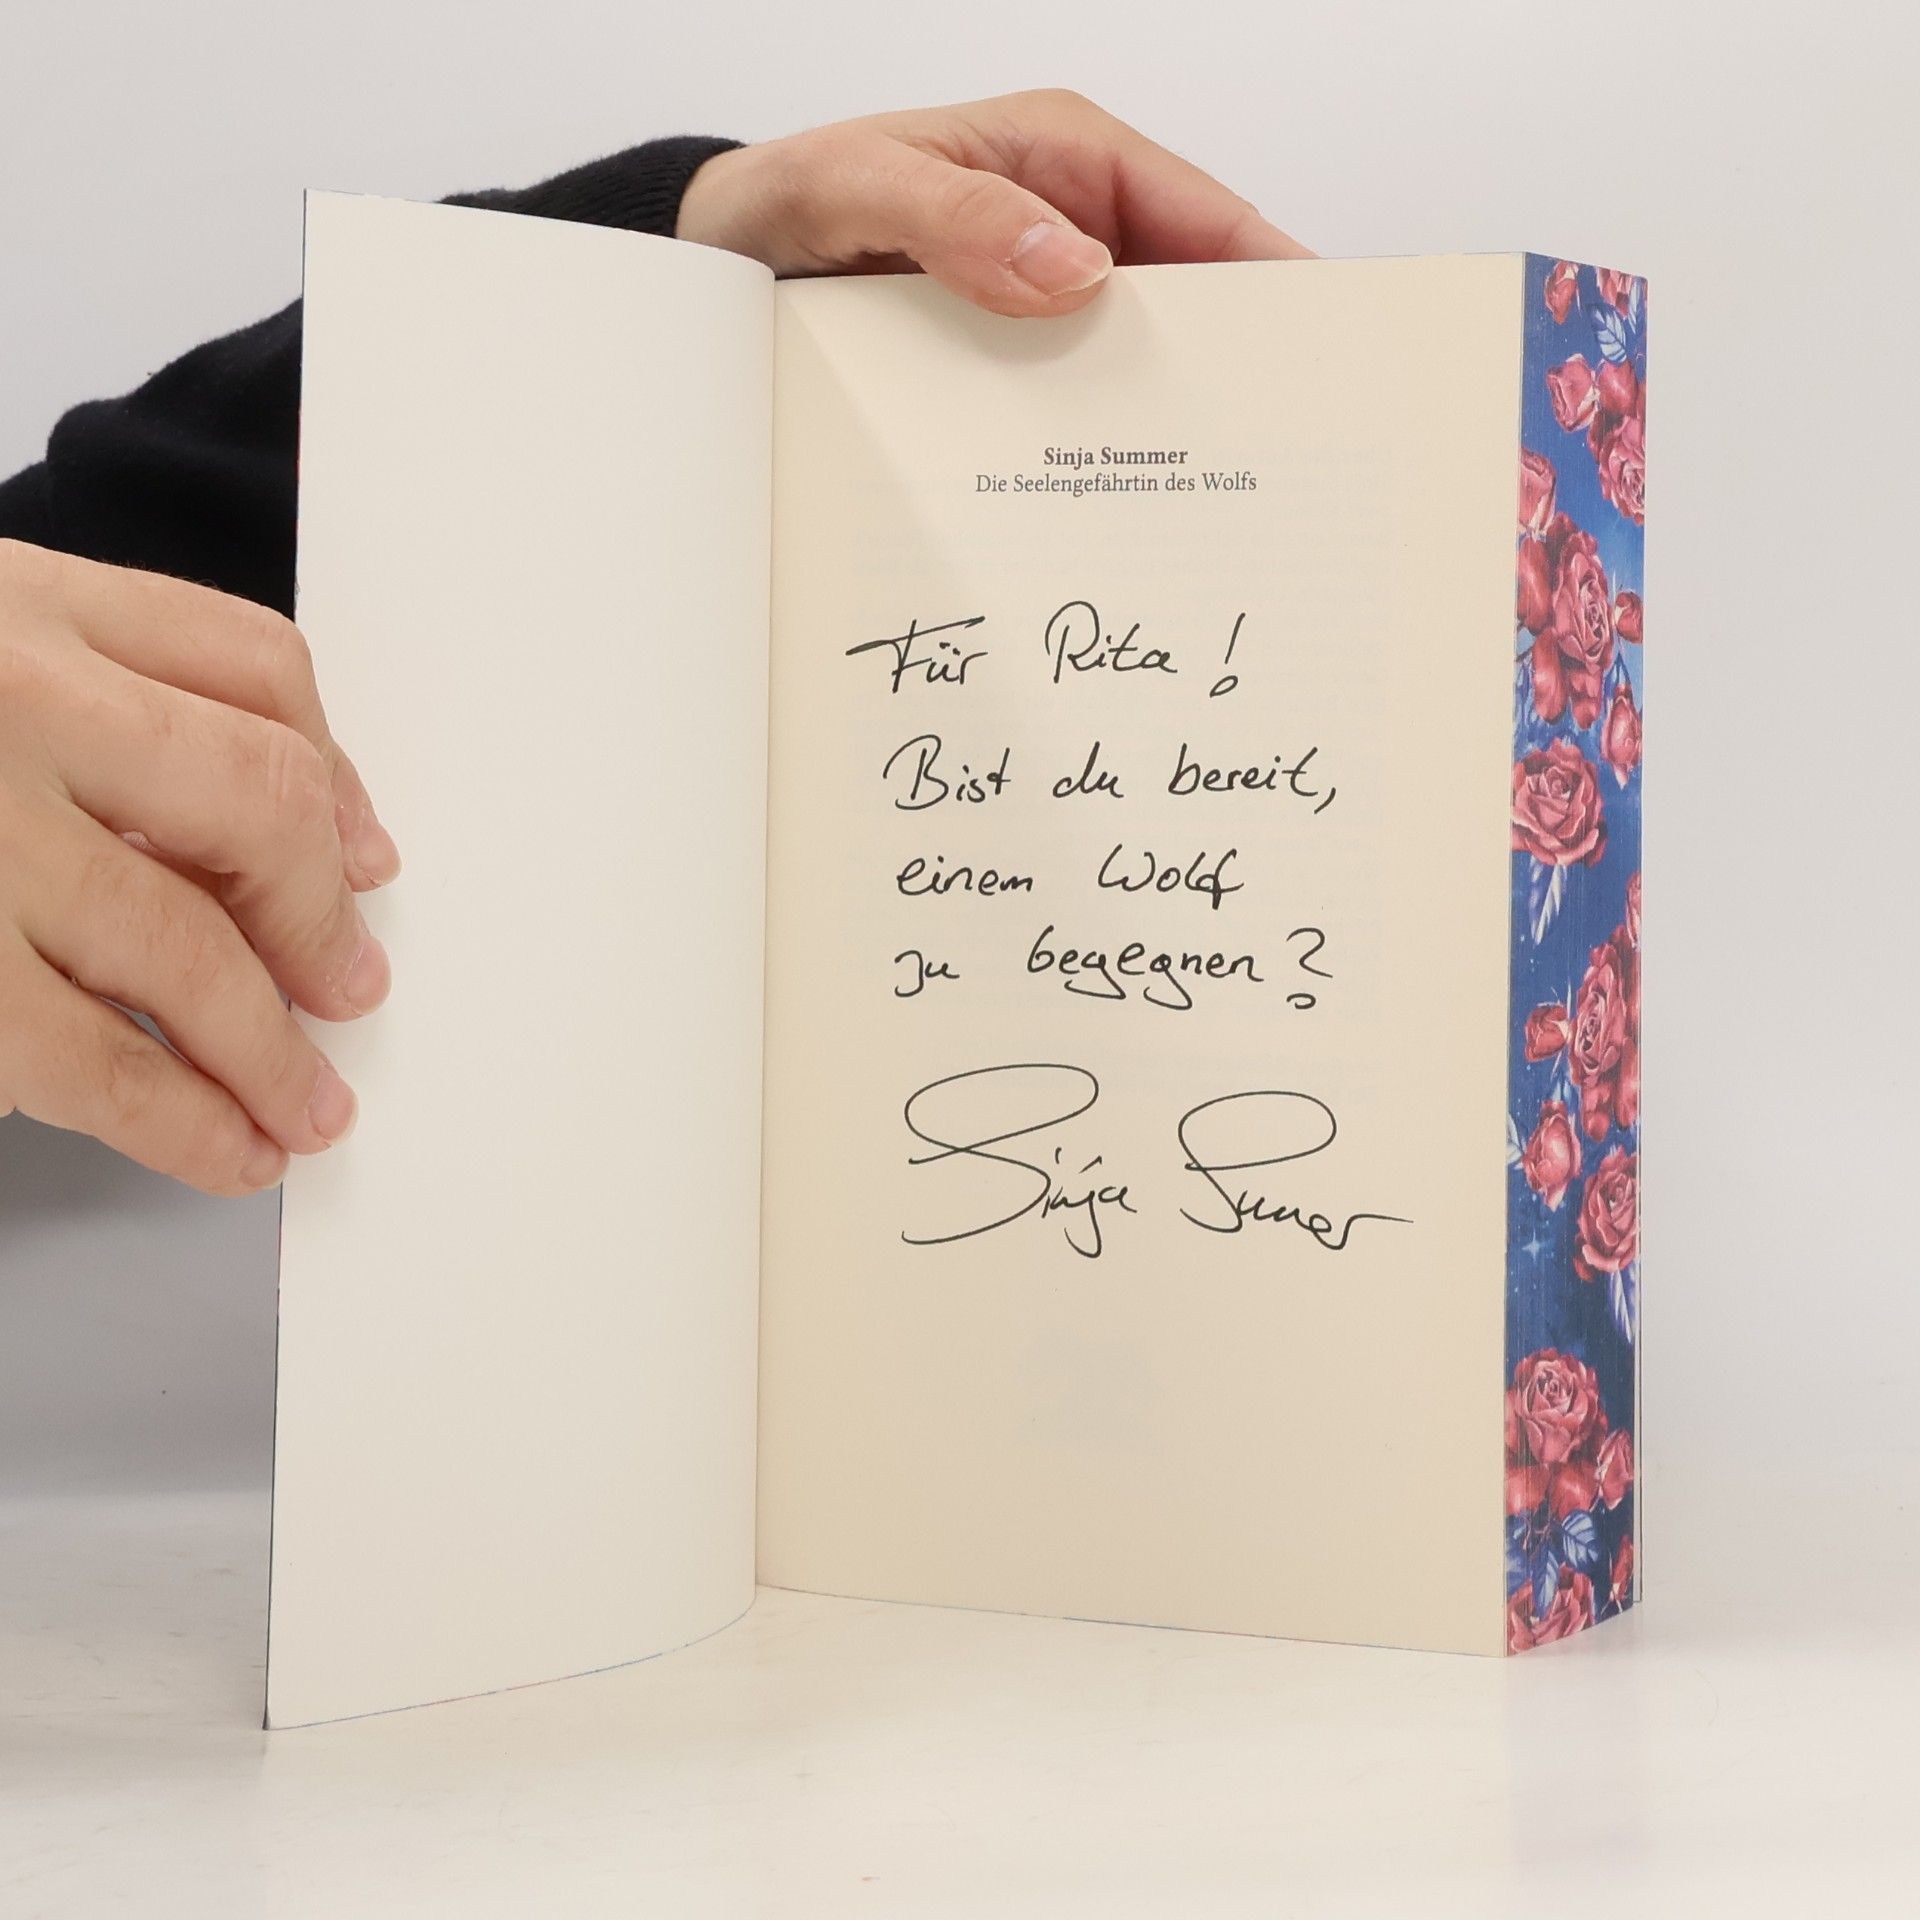 Sinja Summer
Die Seelengefährtin des Wolfs
Für Rita!
Bist du bereit,
einem Wolf
zu begegnen?
Sinja Summer